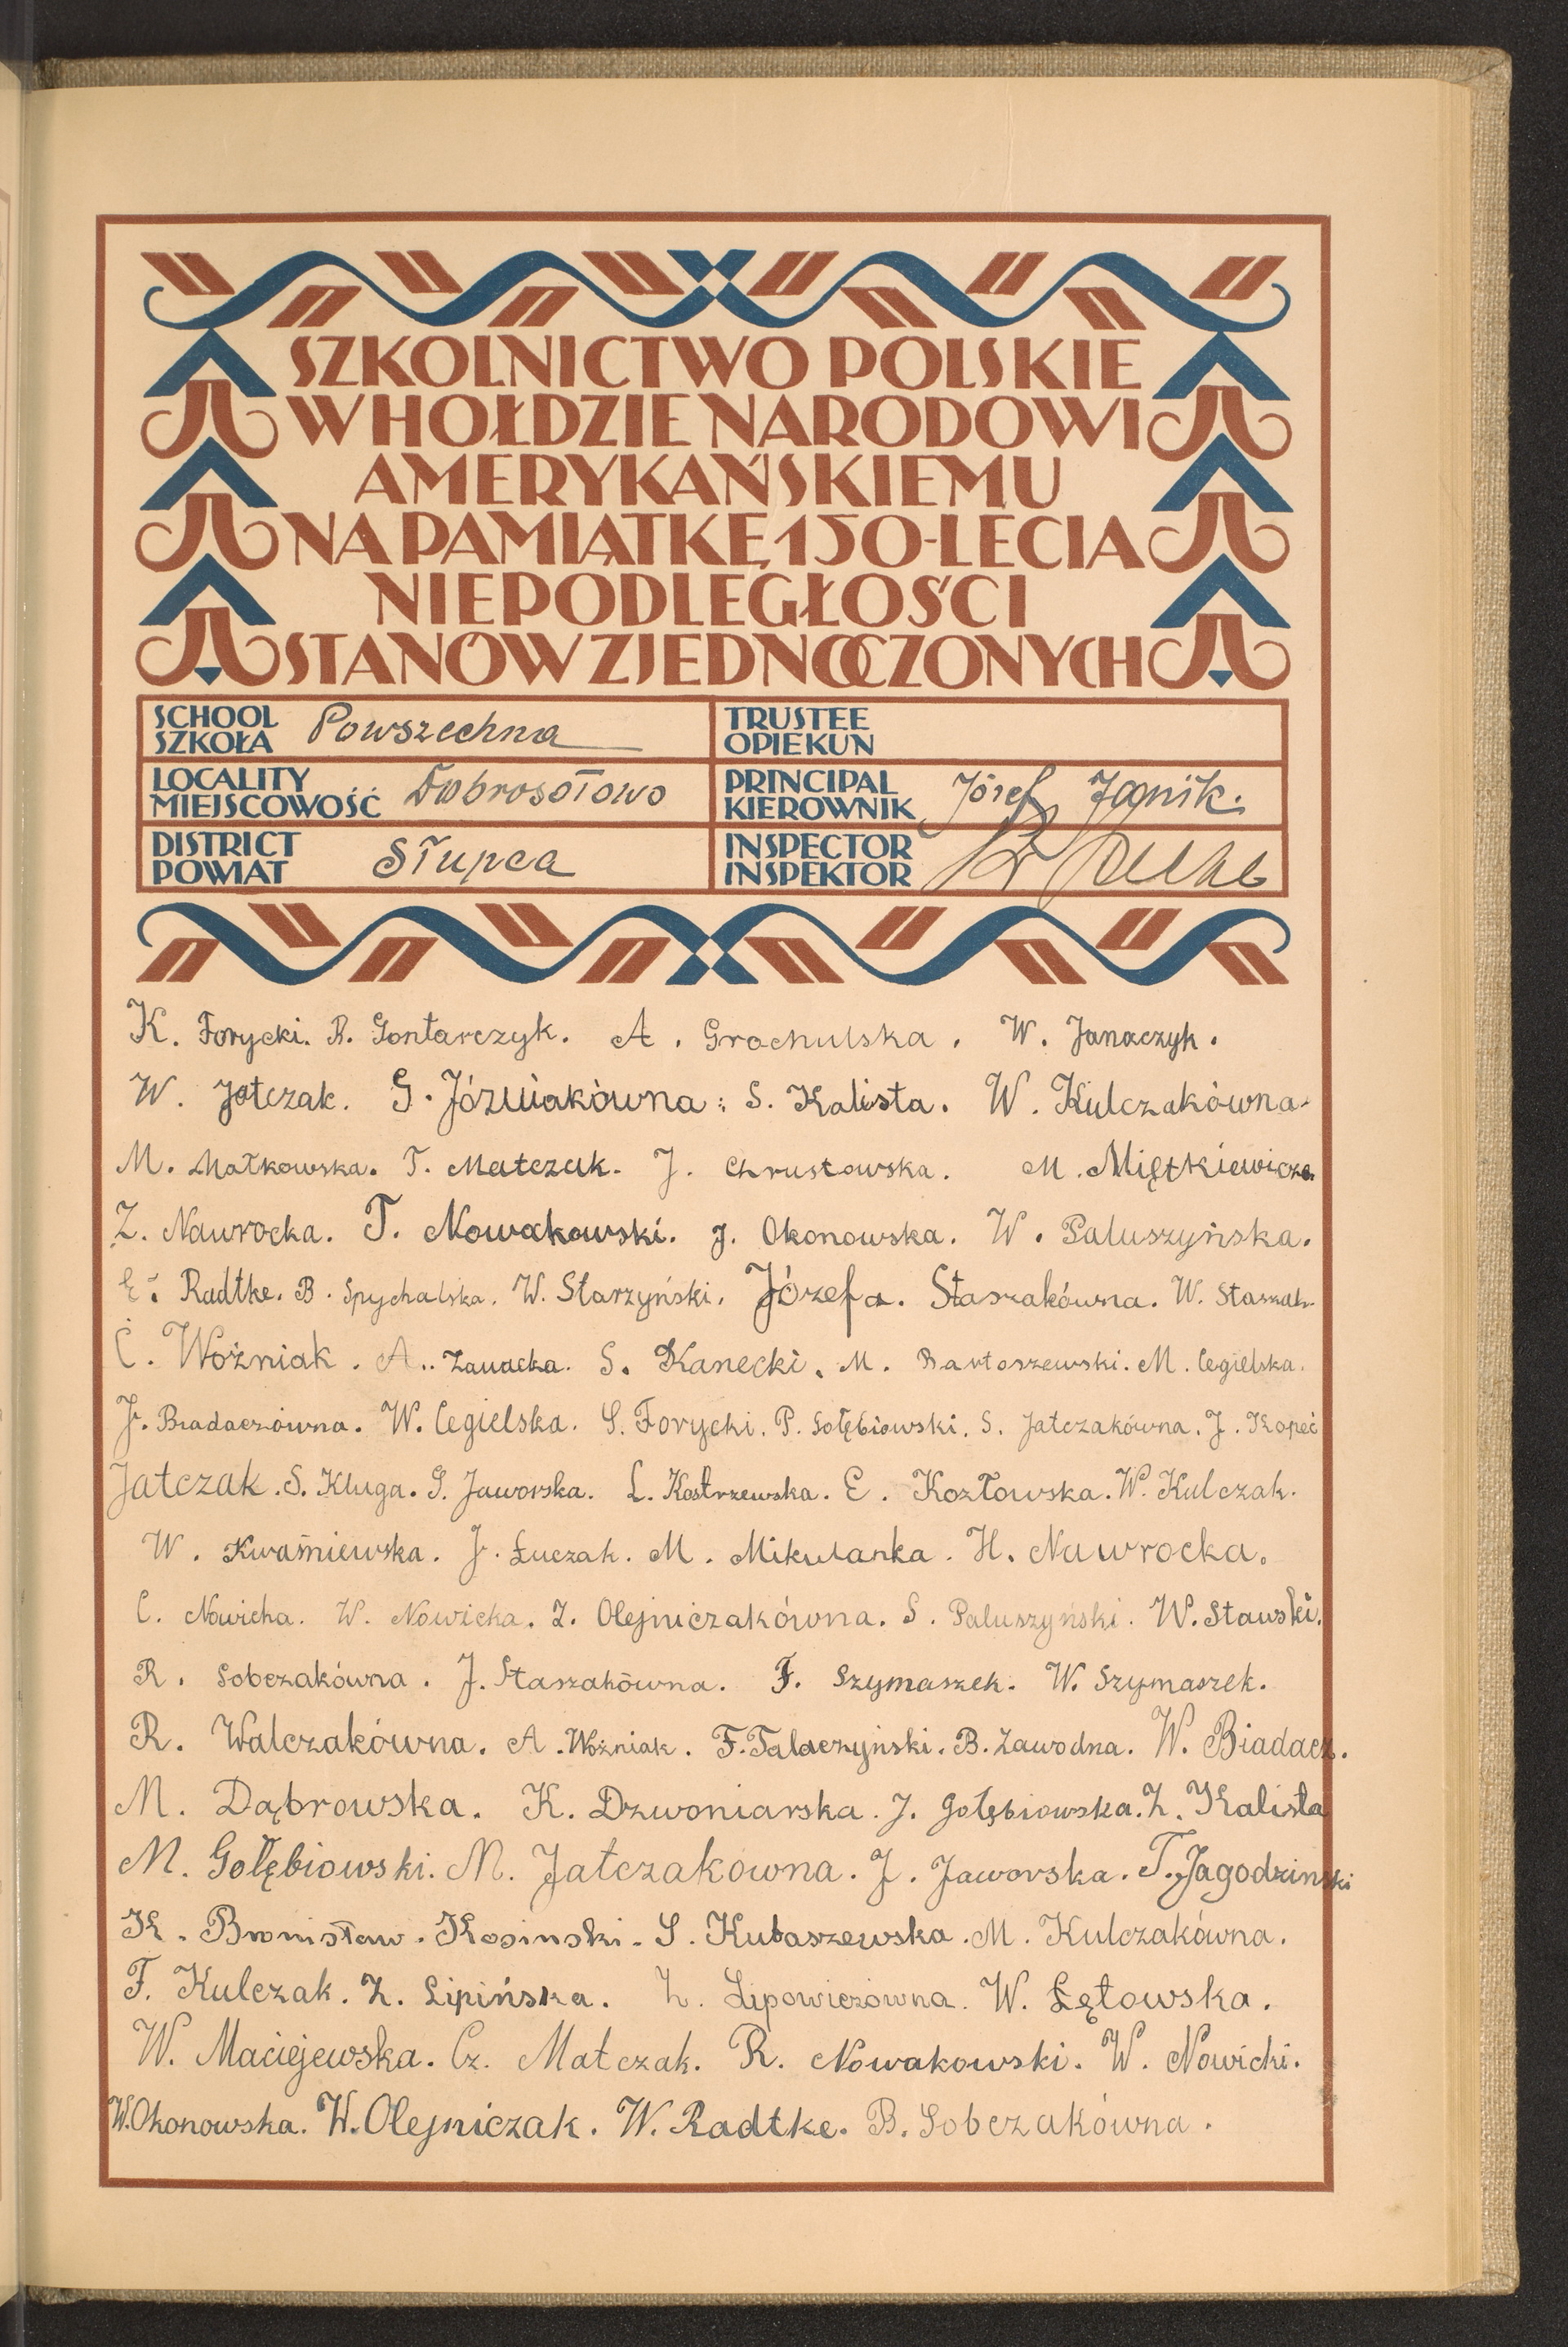 SZKOLNICTWO POLSKIE
W HOŁDZIE NARODOWI
AMERYKAŃSKIEMU
NA PAMIĄTKĘ 150-LECIA
NIEPODLEGŁOŚCI
STANÓW ZJEDNOCZONYCH
SCHOOL
SZKOŁA
Powszechna
TRUSTEE
OPIEKUN
LOCALITY
MIEJSCOWOŚĆ
Dobrosołowo
PRINCIPAL
KIEROWNIK
Józef
DISTRICT
POWIAT
Słupca
INSPECTOR
INSPEKTOR
K. Forycki. R. Gontarczyk. A. Grochulska. W. Janaczyk.
W. Jatczak. G. Jóźwiakówna: S. Kalista. W. Kulczakówna.
M. Małkowska. T. Matczak. J. Chrustowska. M. Miętkiewicz
Z. Nawrocka. T. Nowakowski. J. Okonowska. W. Paluszyńska.
E. Radtke. B. Spychalska. W. Starzyński. Józefa. Staszakówna. W. Staszak
C. Woźniak. A.. Zawacka. S. Kanecki. M. Bartoszewski. M. Cegielska.
J. Biadaczówna. W. Cegielska. S. Forycki. P. Gołębiowski. S. Jatczakówna. J. Kopeć
Jatczak. S. Kluga. G. Jaworska. L. Kostrzewska. E. Kozłowska. W. Kulczak.
W. Kwaśniewska. J. Łuczak. M. Mikulanka. H. Nawrocka.
C. Nowicka. W. Nowicka. Z. Olejniczakówna. S. Paluszyński. W. Stawski.
R. Sobczakówna. J. Staszakówna. F. Szymaszek. W. Szymaszek.
R. Walczakówna. A. Woźniak. F. Talaczyński. B. Zawodna. W. Biadacz.
M. Dąbrowska. K. Dzwoniarska. J. Gołębiowska. Z. Kalista
M. Gołębiowski. M. Jatczakowna. J. Jaworska. T. Jagodzinski
K. Bronisław. Kosinski. S. Kubaszewska. M. Kulczakówna.
F. Kulczak. Z. Lipińska. Z. Lipowiczówna. W. Łętowska.
W. Maciejewska. Cz. Matczak. R. Nowakowski. W. Nowicki.
W. Okonowska. W. Olejniczak. W. Radtke. B. Sobczakówna.